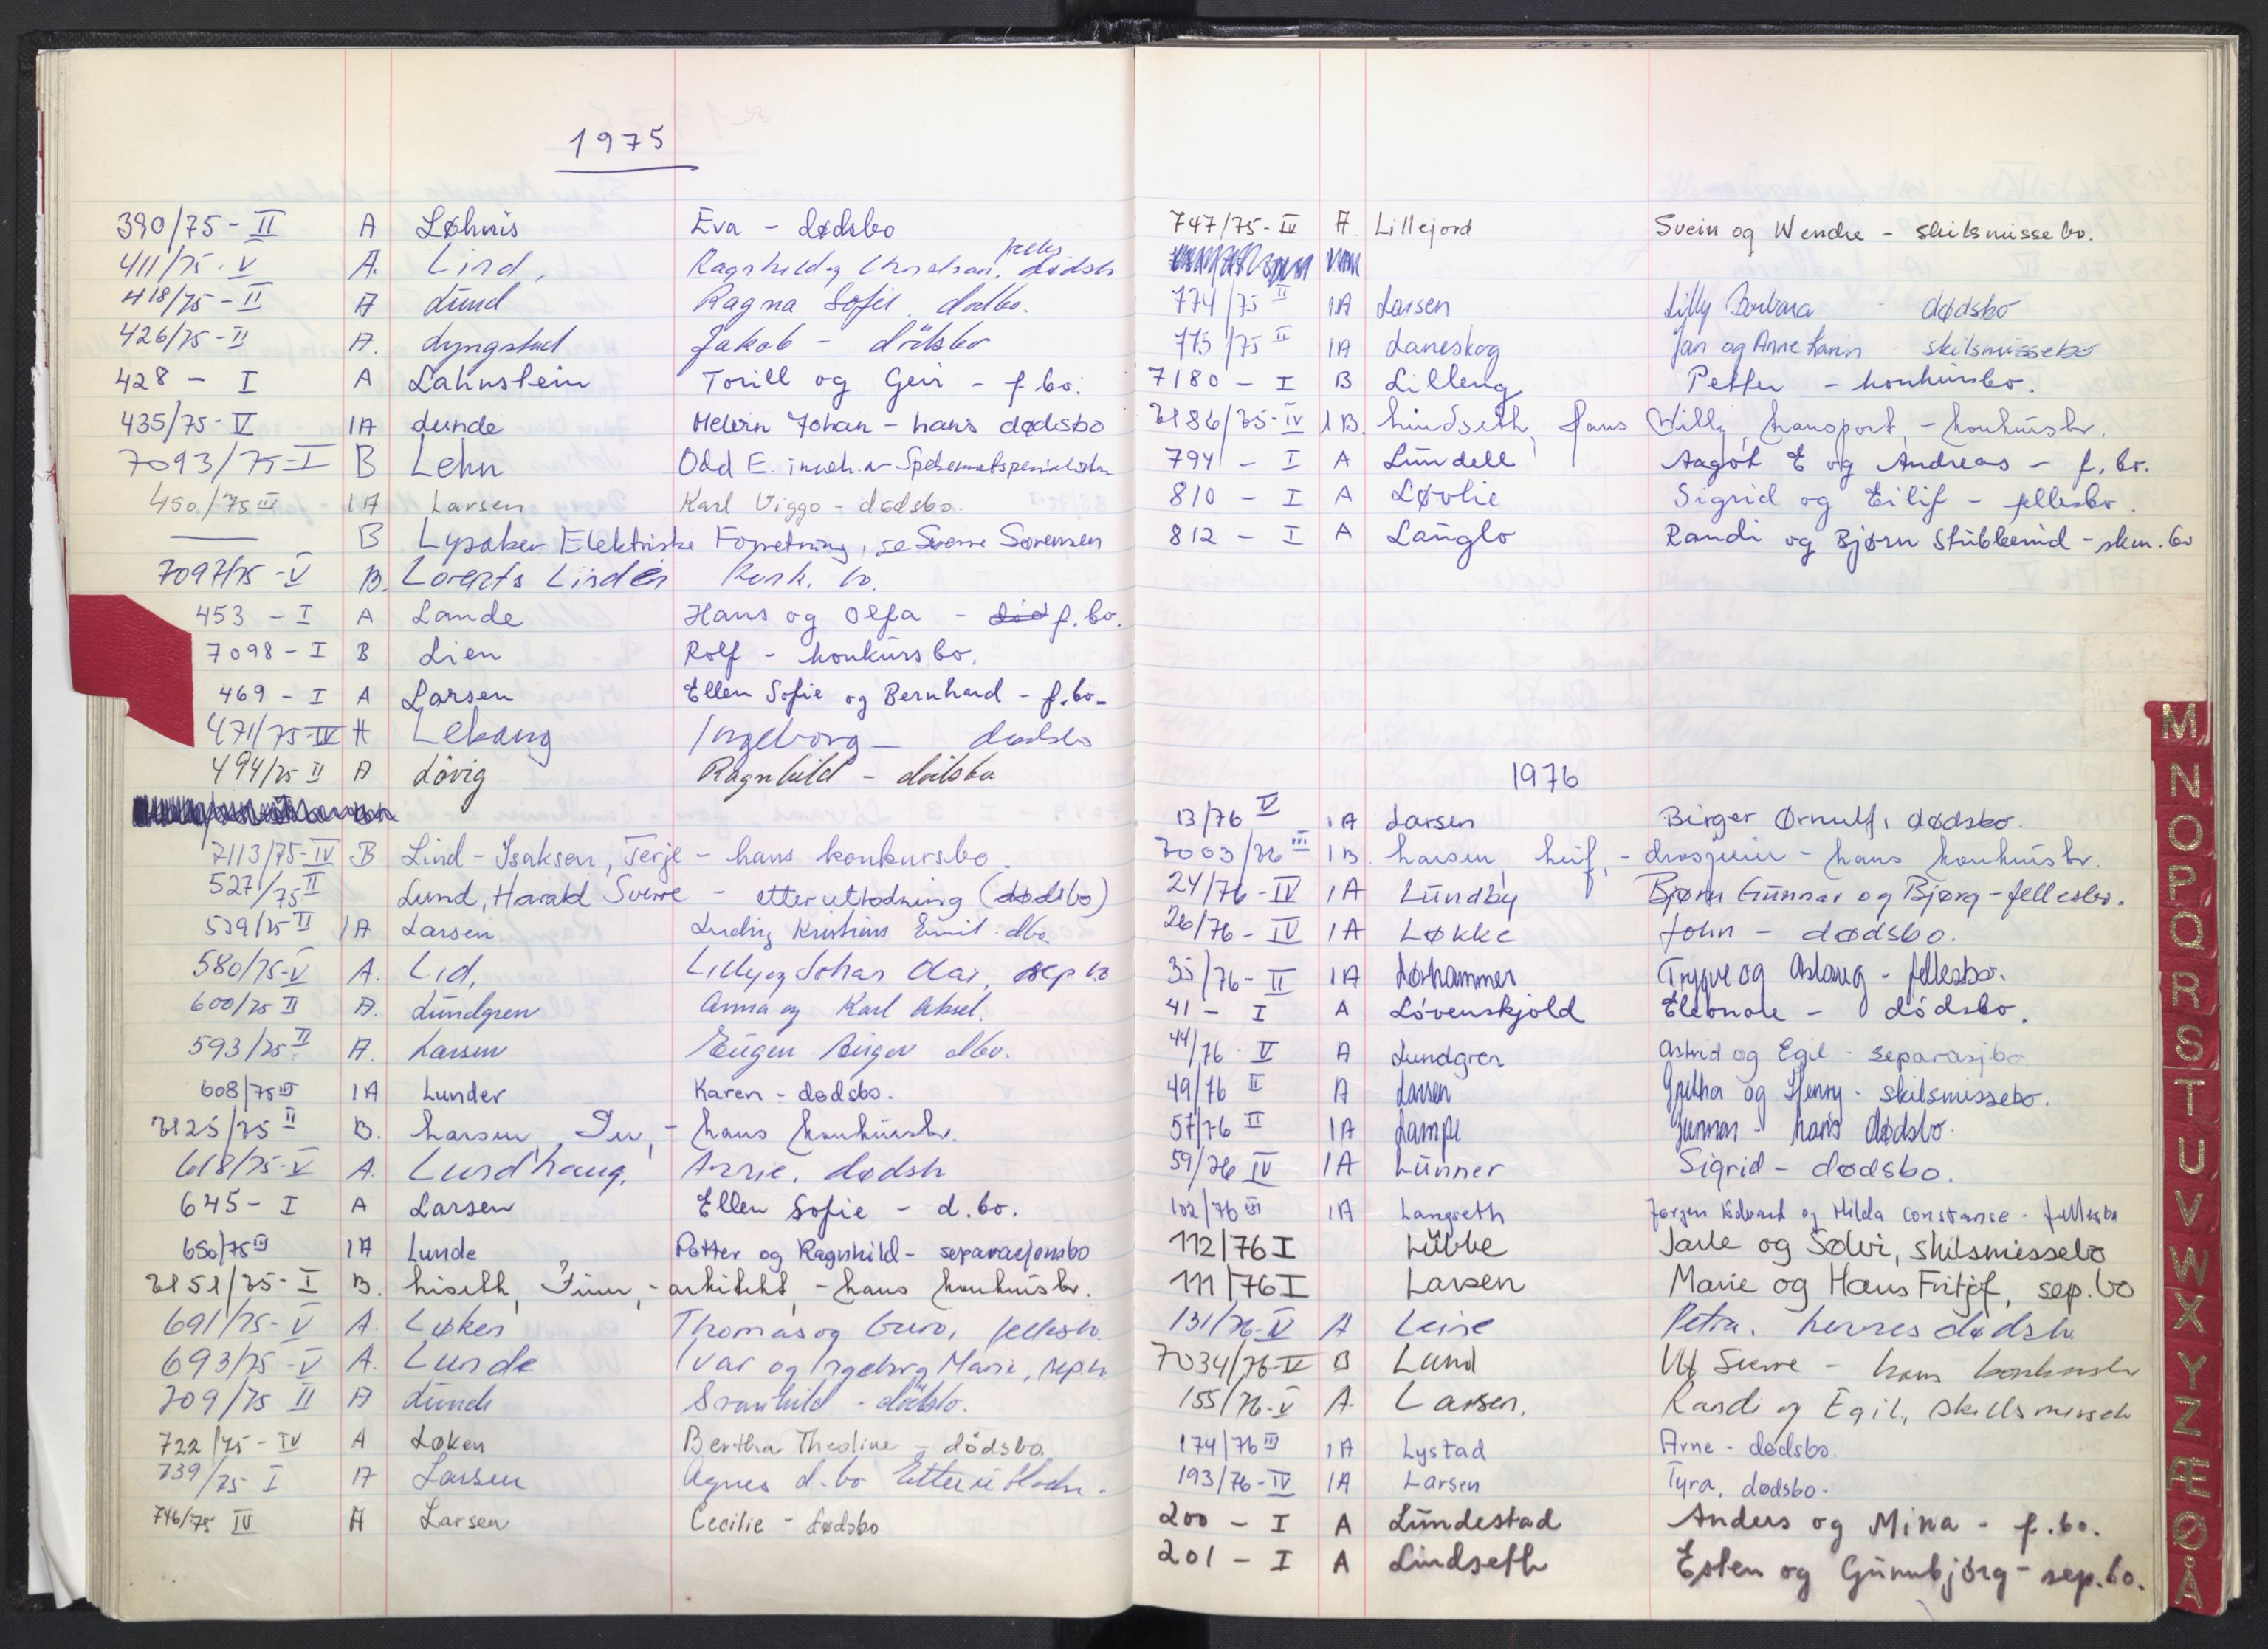 1975
390/75 - II A Løhnis Eva - dødsbo
411/75 - V A. Lind, Ragnhild og felles dødsb
418/75 - II A Lund Ragna Sofie, dødbo.
426/75 - II A. Lyngstad Jakob - dödsbo
428 - I A Lahnstein Torill og Geir - f.bo.
435/75 - V 1A Lunde Melvin Johan - hans dødsbo
7093/75 - I B Lehn Odd E. inneh. av
450/75 III 1A Larsen Karl Viggo - dødsbo.
B Lysaker Elektriske Forretning, se Sverre Sørensen
7097/75 - V B. Lorentz Linder Konk. bo.
453 - I A Lande Hans og Olga - død f.bo.
7098 - I B Lien Rolf - konkursbo.
469 - I A Larsen Ellen Sofie og Bernhard - f.bo-
471/75 - IV A Lekang Ingeborg - dødsbo
494/75 II A Lövig Ragnhild - dödsbo
7113/75 - IV B Lind-Isaksen, Terje - hans konkursbo.
527/75 II Lund, Harald Sverre - etterutlodning (dødsbo)
539/75 II 1A Larsen Ludvig Kristians Emil dbo.
580/75 - V A. Lid, Lilly og Johan Olai, sep bo
600/75 II A. Lundgren Anna og Karl Aksel.
593/75 II A. Larsen Eugen Birger dbo.
608/75 III 1A Lunder Karen - dødsbo.
7125/75 II B. Larsen, - hans konkursbo.
618/75 - V A. Lundhaug, Annie, dødsb
645 - I A Larsen Ellen Sofie - d.bo.
650/75 III 1A Lunde Petter og Ragnhild - separasjonsbo
7151/75 - I B. Liseth, Finn, - arkitekt, - hans konkursbo.
691/75 - V A. Løken Thomas og Guro, fellesbo.
693/75 - V A. Lunde Ivar og Ingeborg Marie, sep.bo
709/75 II A Lunde Svanhild - dödsbo.
722/75 - IV A Løken Bertha Theoline - dödsbo.
739/75 I A Larsen Agnes d.bo Etterutlodn.
746/75 IV A Larsen Cecilie - dødsbo
747/75 - IV A Lillejord Svein og Wenche - skilsmissebo.
774/75 II 1A Larsen Lilly Barbara - dødsbo
775/75 II 1A Laneskog Jan og Anne Karin - skilsmissebo
7180 - I B Lilleng Petter - konkursbo.
7186/75 - IV 1B. Lindseth, Hans Willy, transport, - konkursbo.
794 - I A Lundell Aagot E og Andreas - f.bo.
810 - I A Løvlie Sigrid og Eilif - fellesbo.
812 - I A Langlo Randi og Bjørn Stubberud - skm.bo
1976
13/76 V 1A Larsen Birger Ørnulf, dødsbo.
7003/76 III 1B. Larsen, Leif, - drosjeeier - hans konkursbo.
24/76 - IV 1A Lundby Bjørn Gunnar og Bjørg - fellesbo.
26/76 - IV 1A Løkke John - dødsbo.
35/76 - II 1A Lørhammer Trygve og Aslaug - fellesbo.
41 - I A Lövenskjold Eleonore - dödsbo.
44/76 - V A Lundgren Astrid og Egil - separasjbo
49/76 II A Larsen Gretha og Henry - skilsmissebo.
57/76 II 1A Lampe Gunnar - hans dødsbo.
59/76 IV 1A Lunner Sigrid - dødsbo.
102/76 III 1A Langseth Jørgen Edvard og Hilda Constanse - fellesbo
112/76 I Lübbe Jarle og Sølvi, skilsmissebo
111/76 I Larsen Marie og Hans Fritjof, sep.bo
131/76 - V A Leine Petra, hennes dødsb.
7034/76 - IV B Lund Ulf Sverre - hans konkursbo
155/76 - V A. Larsen, Randi og Egil, skillsmisseb
174/76 III 1A Lystad Arne - dødsbo.
193/76 - IV 1A Larsen Tyra, dødsbo.
200 - I A Lundestad Anders og Mina - f.bo.
201 - I A Lindseth Esten og Gunnbjörg - sep.bo.
M
N
O
P
Q
R
S
T
U
V
W
X
Y
Z
Æ
Ø
Å